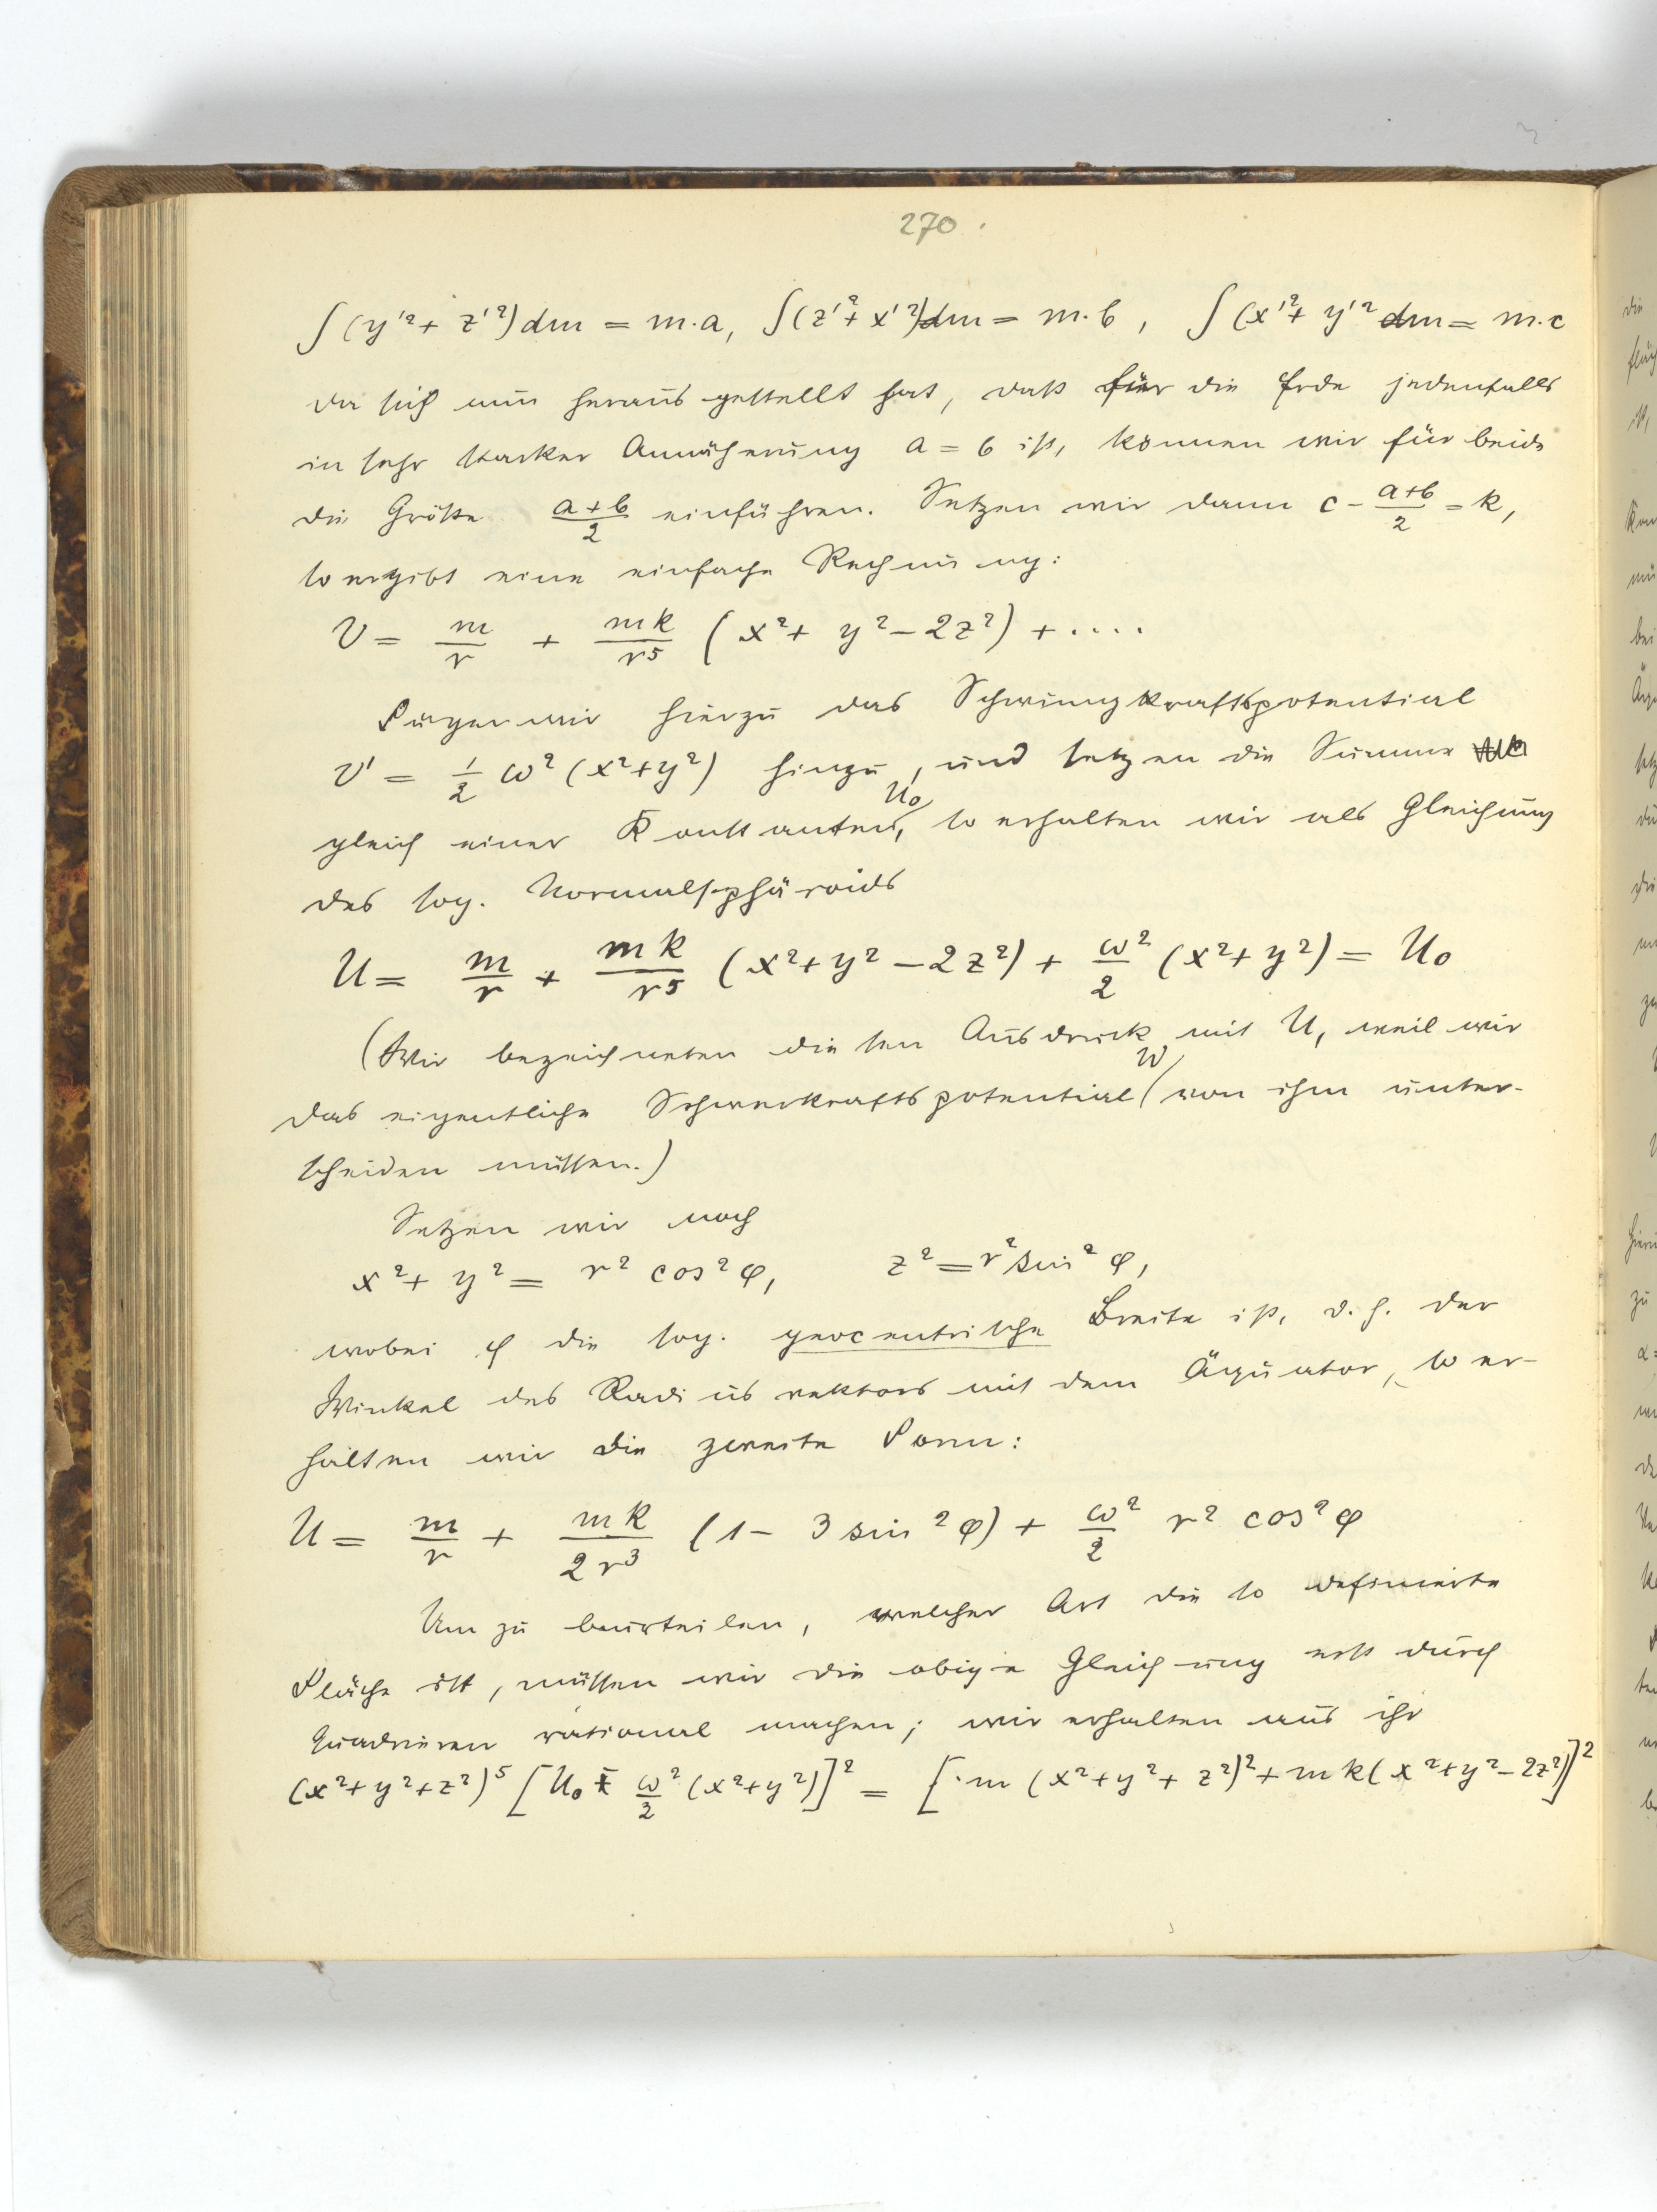 270.
∫(y'²+ z'²)dm = m.a, ∫(z'²+ x'²)dm = m.b, ∫(x'²+ y'² dm = m.c
da sich nun herausgestellt hat, daß für die Erde jedenfalls
in sehr starker Annäherung a = b ist, können wir für beide
die Größe (a+b)/2 einführen. Setzen wir dann c - (a+b)/2 = k,
so ergibt eine einfache Rechnung:
V = m/r + mk/r⁵ (x²+ y²- 2z²) + ....
Fügen wir hierzu das Schwungkraftspotential
V' = 1/2 ω² (x²+y²) hinzu, und setzen die Summe
gleich einer Konstanten U₀, so erhalten wir als Gleichung
des sog. Normalsphäroids
U = m/r + mk/r⁵ (x²+y²-2z²) + ω²/2 (x²+y²) = U₀
(Wir bezeichneten diesen Ausdruck mit U, weil wir
das eigentliche Schwerkraftspotential W von ihm unter-
scheiden müssen.)
Setzen wir noch
x²+ y² = r² cos²φ, z² = r² sin²φ,
wobei φ die sog. geocentrische Breite ist, d.h. der
Winkel des Radiusvektors mit dem Äquator, so er-
halten wir die zweite Form:
U = m/r + mk/2r³ (1- 3 sin²φ) + ω²/2 r² cos²φ
Um zu beurteilen, welcher Art die so definierte
Fläche ist, müssen wir die obige Gleichung erst durch
Quadrieren rational machen; wir erhalten aus ihr
(x²+y²+z²)⁵ [U₀ - ω²/2 (x²+y²)]² = [m (x²+y²+z²)²+ mk(x²+y²-2z²)]²